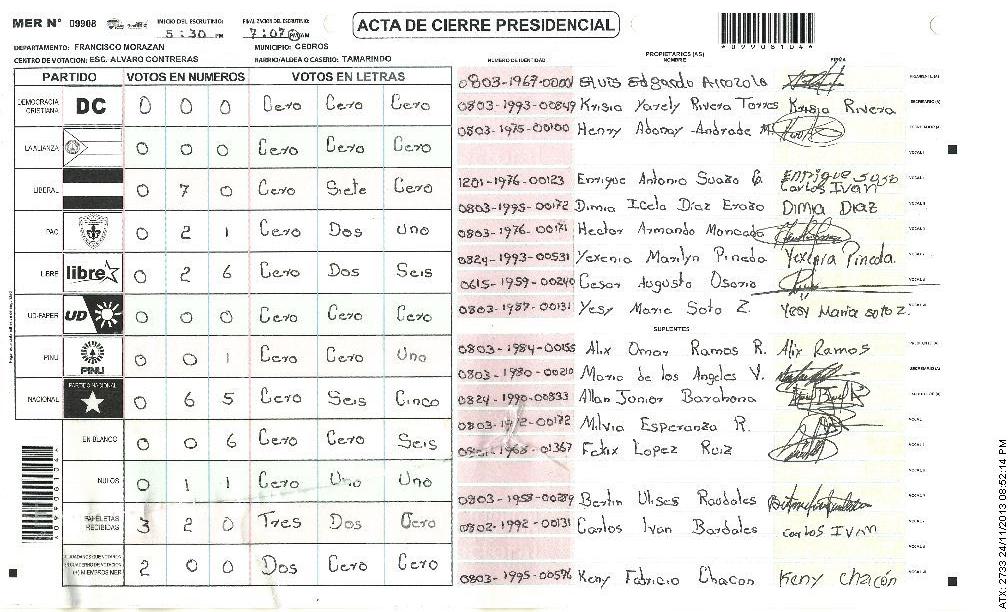 MER N° 09908
INICIO DEL ESCRUTINIO: 5:30 PM
FINALIZACIÓN DEL ESCRUTINIO: 7:07 PM AM
ACTA DE CIERRE PRESIDENCIAL
DEPARTAMENTO: FRANCISCO MORAZAN
MUNICIPIO: CEDROS
CENTRO DE VOTACION: ESC. ALVARO CONTRERAS
BARRIO/ALDEA O CASERIO: TAMARINDO
PARTIDO VOTOS EN NUMEROS VOTOS EN LETRAS
DEMOCRACIA CRISTIANA DC 0 0 0 Cero Cero Cero
LA ALIANZA 0 0 0 Cero Cero Cero
LIBERAL 0 7 0 Cero Siete Cero
PAC 0 2 1 Cero Dos uno
LIBRE libre 0 2 6 Cero Dos Seis
UD-FAPER UD 0 0 0 Cero Cero Cero
PINU PINU 0 0 1 Cero Cero Uno
NACIONAL PARTIDO NACIONAL 0 6 5 Cero Seis Cinco
EN BLANCO 0 0 6 Cero Cero Seis
NULOS 0 1 1 Cero Uno Uno
PAPELETAS RECIBIDAS 3 2 0 Tres Dos Cero
2 0 0 Dos Cero Cero
NUMERO DE IDENTIDAD
PROPIETARIOS (AS)
NOMBRE
FIRMA
0803-1967-00001 Elvis Edgardo
0803-1993-00849 Krisia Yarely Rivera Torres Krisia Rivera
0803-1975-00100 Henry Adonay Andrade M.
1201-1976-00123 Enrique Antonio Suazo
Carlos Ivan
0803-1995-00172 Dimia Icela Diaz Erazo DIMIA DIAZ
0803-1976-00171 Hector Armando Moncada
0824-1993-00531 Yexenia Marilyn Pineda Yexenia Pineda
0615-1959-00240 Cesar Augusto Osorio
0803-1987-00131 Yesy Maria Soto Z. Yesy Maria soto z.
SUPLENTES
0803-1984-00155 Alix Omar Ramos R. Alix Ramos
0803-1980-00210 Maria de los Angeles V.
0824-1990-00833 Allan Junior Barahona
Milvia Esperanza R.
Felix Lopez Ruiz
0803-1958-00289 Bertin Ulises Raudales
0802-1992-00131 Carlos Ivan Bardales carlos IVAN
0803-1995-00576 Keny Fabricio Chacon Keny chacón
ATX: 2733 24/11/2013 08:52:14 PM